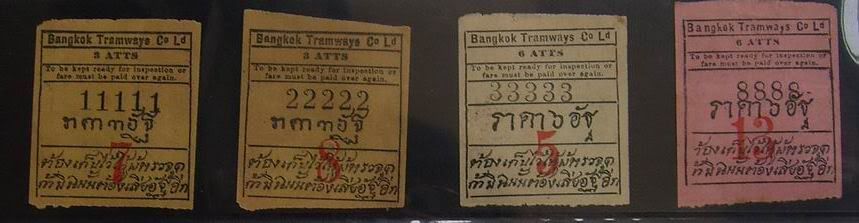 Bangkok Tramways Co Ld
3 ATTS
To be kept ready for inspection or
fare must be paid over again.
11111
ราคา ๓ อัฐ
7
ต้องเก็บไว้
ต้องเสียอัฐอีก
Bangkok Tramways Co Ld
3 ATTS
To be kept ready for inspection or
fare must be paid over again.
22222
ราคา ๓ อัฐ
ต้องเก็บไว้
ต้องเสียอัฐอีก
Bangkok Tramways Co Ld
6 ATTS
To be kept ready for inspection or
fare must be paid over again.
33333
ราคา ๖ อัฐ
5
ต้องเก็บไว้
ต้องเสียอัฐอีก
Bangkok Tramways Co Ld
6 ATTS
To be kept ready for inspection or
fare must be paid over again.
8888
ราคา ๖ อัฐ
13
ต้องเก็บไว้
ต้องเสียอัฐอีก